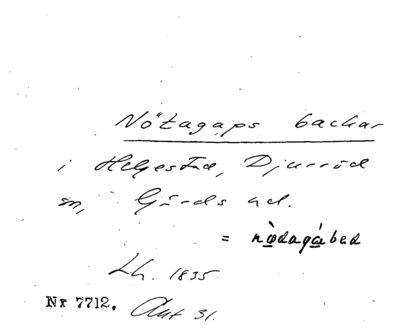 Nötagaps backar
i Helgestad, Djurröd
sn, Gärds hd.
= nödagábad
Lh. 1835
Nr 7712. Akt 31.